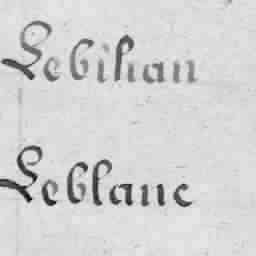 Lebihan
Leblanc